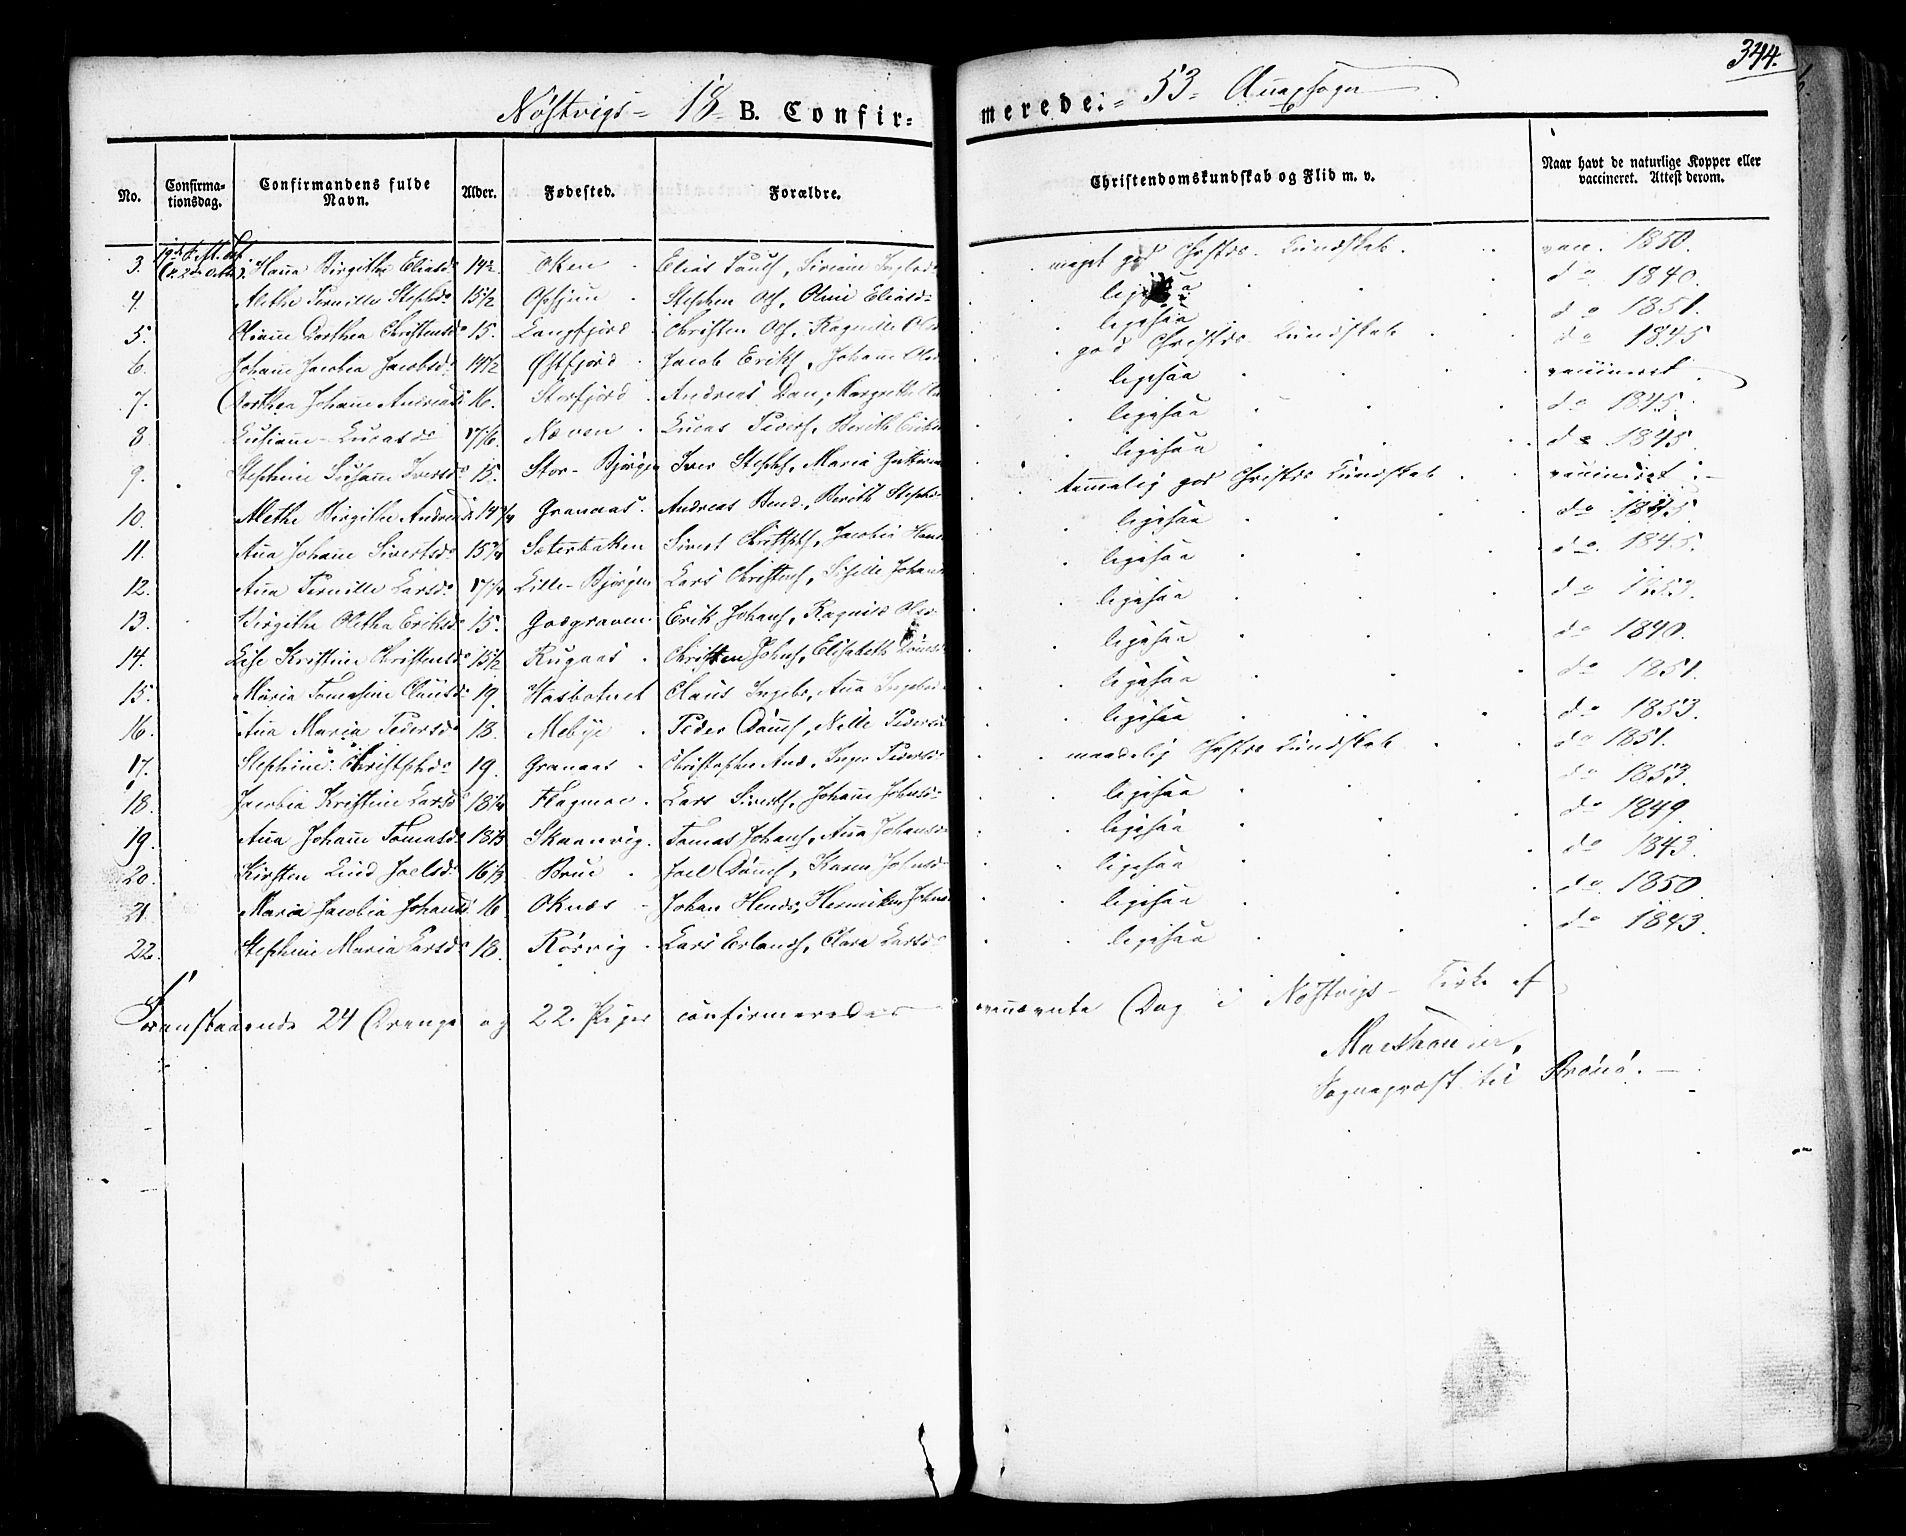 344.
Nöstvigs - 18 B. Confirmerede. 53 Annexsogn
No. Confirmationsdag. Confirmandens fulde Navn. Alder. Fødested. Forældre. Christendomskundskab og Flid m. v. Naar havt de naturlige Kopper eller vaccineret. Attest derom.
3. Hanna Birgitha Eliasd. Oken Elias meget god Chrstds. Kundskab. vac. 1850.
4. Alethe Pernille Stephd. 15½ Stephen Ols, Oline Eliasd ligesaa do 1840.
5. Dorthea Christensd 15. Langfjord Christen Ols, Ragnille Ols ligesaa do 1851.
6. Johane Jacobia Jacobsd. 14½ Østfjord Jacob Eriks, Johane Ols god Christds. Kundskab do 1845
7. Dorthea Johane Andreasd 16. Storfjord Andreas Dan, Margrethe ligesaa vaccineret
8. Lusiane Lucasd Næven Lucas Peders, Berith ligesaa do 1845.
9. Stephine Susane Iversd. 15. Stor-Bjørgen Iver Stephs, Maria ligesaa do 1845.
10. Alethe Birgithe Andreasd 14¾ Granaas. Andreas Bend, Berith Stephd temmelig god Christds Kundskab vaccineret
11. Ana Johane Sivertsd. 15¾ Sæterbakken Sivert Christophs, Jacobia Hans ligesaa do 1845
12. Ana Pernille Larsd. Lille-Bjørgen Lars Christens, Sisille Johans ligesaa do 1845.
13. Birgithe Oletha Eriksd 15. Godgraven Erik Johans, Ragnild Ols ligesaa do 1853.
14. Lise Kristine Christensd 15½ Rugaas Christen Johns, Elisabeth ligesaa do 1840.
15. Maria Tomasine Clausd. 19. Hasbotnet Claus Ingebr, Ana Ingebr ligesaa do 1851.
16. Ana Maria Pedersd. 18. Mebye Peder Nille Peders ligesaa do 1853.
17. Stephine Christophd 19. Granaas Christopher And, Inger Peders maadelig Chrstds Kundskab do 1851.
18. Jacobia Kristine Larsd 18¼ Flagmoe Lars Siverts, Johane Johnsd ligesaa do 1853.
19. Ana Johane Tomasd. 18⅓ Skaanvig. Tomas Johans, Ana Johans ligesaa do 1849.
20. Kirsten Lind Joelsd. 16⅓ Brue Joel Karen Johnsd ligesaa do 1843.
21. Maria Jacobia Johansd 16 Oknæs Johan Hends, Hennikke Johns ligesaa do 1850.
22. Stephine Maria Larsd. 18. Rørvig Lars Erlands, Clara Larsd ligesaa do 1843.
Foranstaaende 24 Drenge og 22 Piger confirmeredes ovennævnte Dag i Nöstvigs-Kirke af
Sognepræst til Brönö.